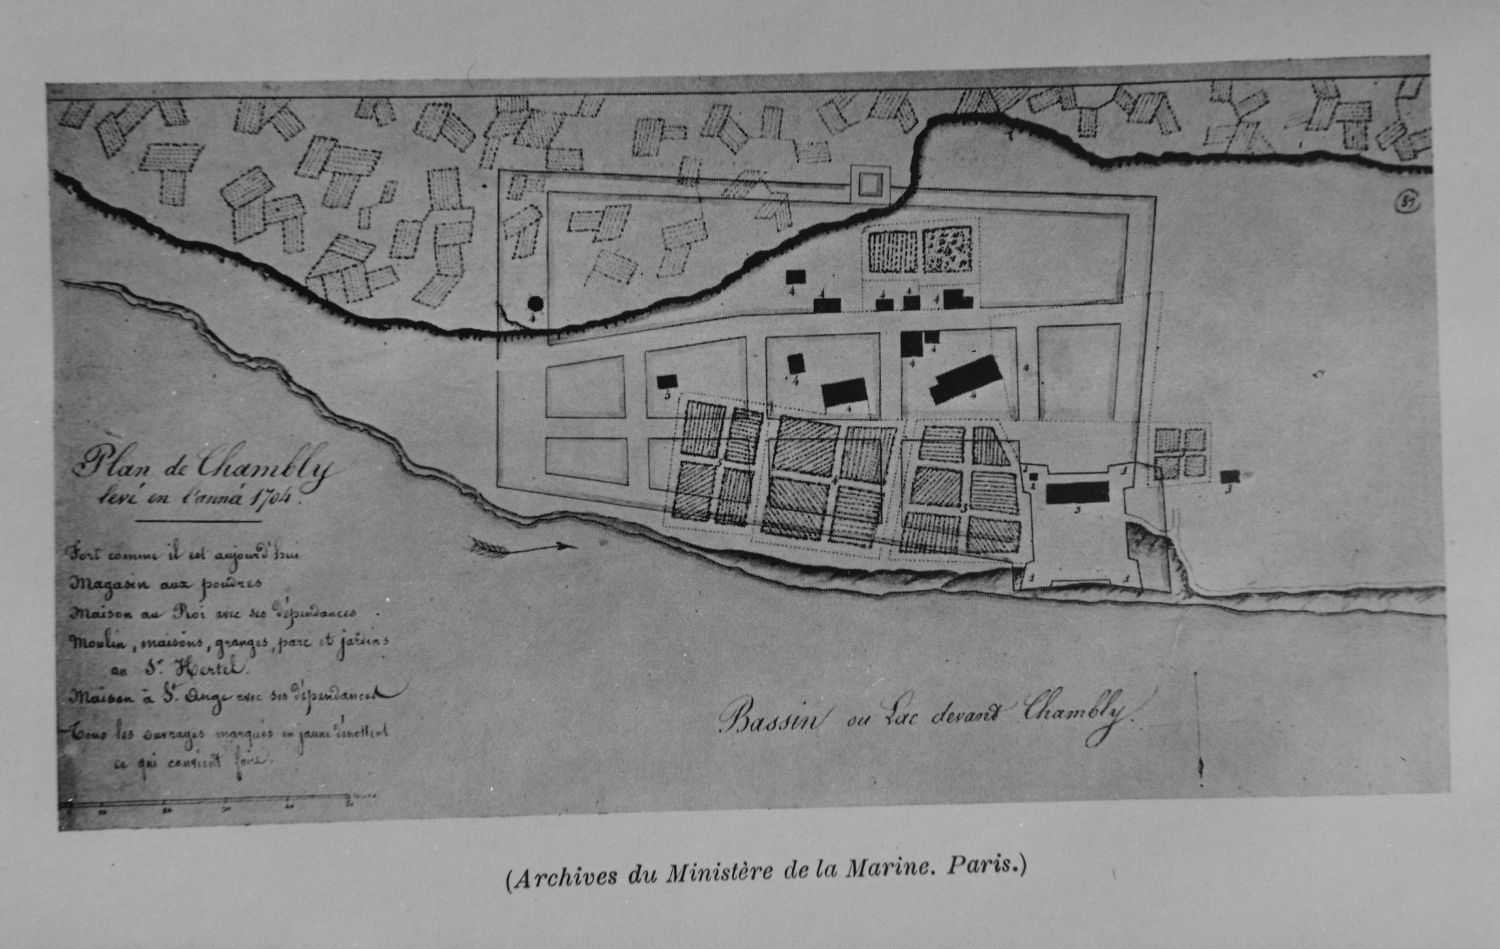 81
Plan de Chambly
levé en l'anná 1704.
Fort comme il est aujourd'hui
Magasin aux poudres
Maison au Roi avec ses dépendances
Moulin, maisons, granges, parc et jardins
au Sr. Hertel.
Maison à St. Ange avec ses dépendances
Tous les ouvrages marqués en jaune dénottent
ce qui convient faire.
Bassin ou Lac devant Chambly.
(Archives du Ministère de la Marine. Paris.)